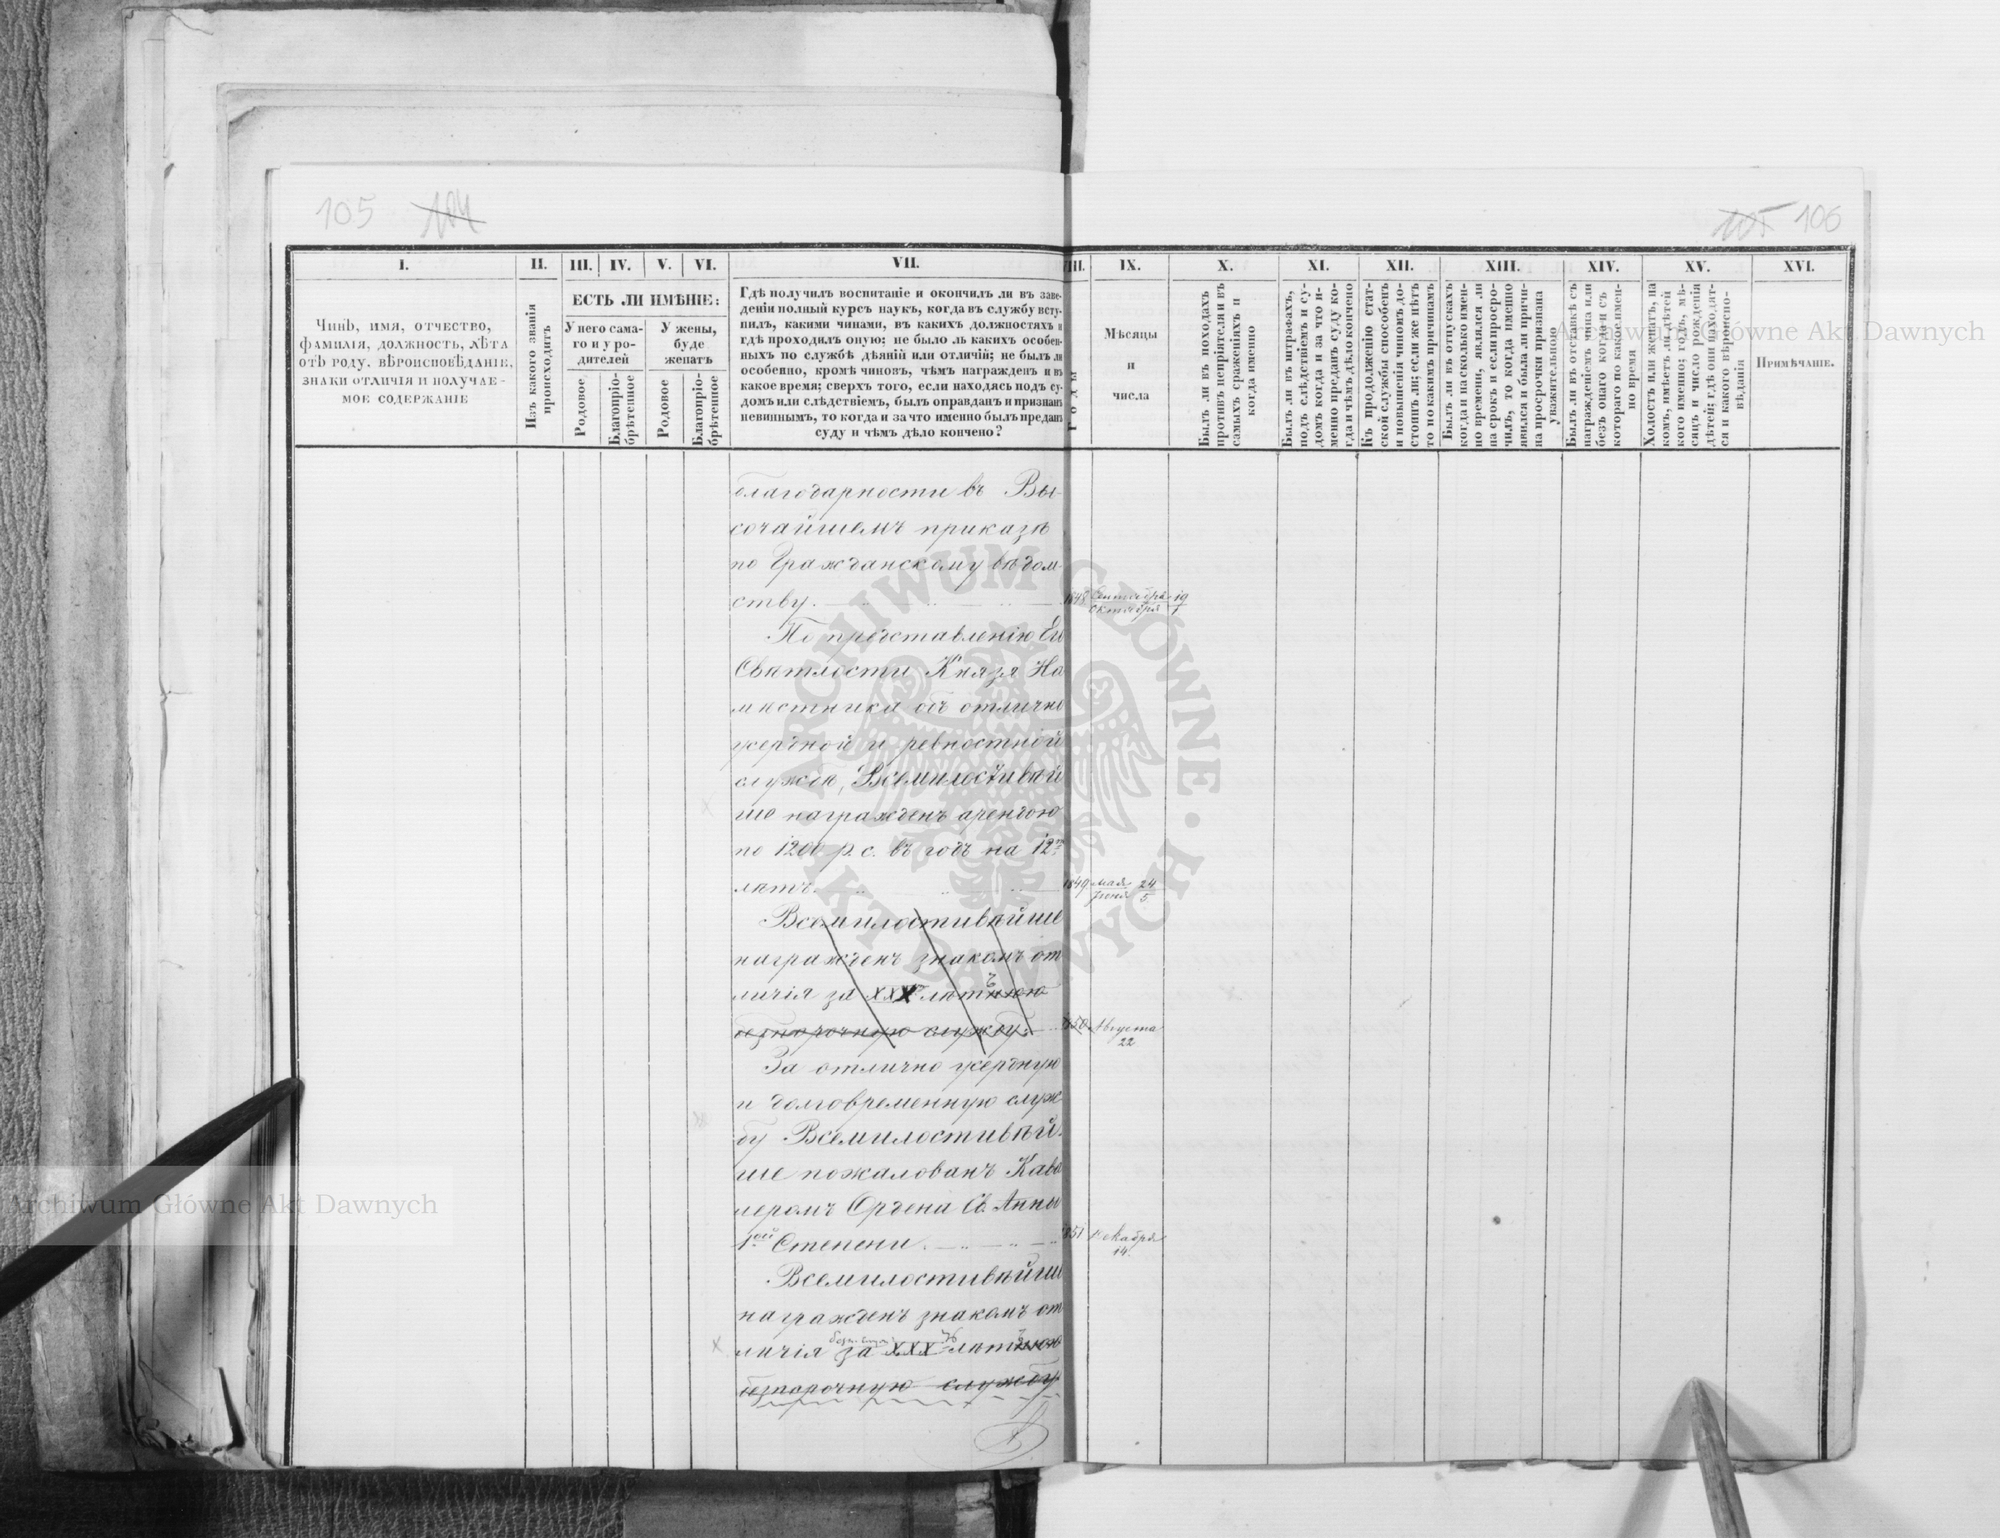 105 104
105 106
I. II. III. IV. V. VI. VII. VIII. IX. X. XI. XII. XIII. XIV. XV. XVI.
Чинъ, имя, отчество,
фамилія, должность, лѣта
отъ роду, вѣроисповѣданіе,
знаки отличія и получае-
мое содержаніе
Изъ какого званія
происходитъ
ЕСТЬ ЛИ ИМѢНІЕ:
У него сама-
го и у ро-
дителей
У жены,
буде
женатъ
Родовое
Благопріо-
брѣтенное
Родовое
Благопріо-
брѣтенное
Гдѣ получилъ воспитаніе и окончилъ ли въ заве-
деніи полный курсъ наукъ, когда въ службу всту-
пилъ, какими чинами, въ какихъ должностяхъ и
гдѣ проходилъ оную; не было ль какихъ особен-
ныхъ по службѣ дѣяній или отличій; не былъ ли
особенно, кромѣ чиновъ, чѣмъ награжденъ и въ
какое время; сверхъ того, если находясь подъ су-
домъ или слѣдствіемъ, былъ оправданъ и признанъ
невиннымъ, то когда и за что именно былъ преданъ
суду и чѣмъ дѣло кончено?
Годы
Мѣсяцы
и
числа
Былъ ли въ походахъ
противъ непріятеля и въ
самыхъ сраженіяхъ и
когда именно
Былъ ли въ штрафахъ,
подъ слѣдствіемъ и су-
домъ когда и за что и-
менно преданъ суду ко-
гда и чѣмъ дѣло кончено
Къ продолженію стат-
ской службы способенъ
и повышенія чиномъ до-
стоинъ ли; если же нѣтъ
то по какимъ причинамъ
Былъ ли въ отпускахъ
когда и на сколько имен-
но времени, являлся ли
на срокъ и если просро-
чилъ, то когда именно
явился и была ли причи-
на просрочки признана
уважительною
Былъ ли въ отставкѣ съ
награжденіемъ чина или
безъ онаго когда и съ
котораго по какое имен-
но время
Холостъ или женатъ, на
комъ, имѣетъ ли дѣтей
кого именно; годъ, мѣ-
сяцъ и число рожденія
дѣтей; гдѣ они находят-
ся и какого вѣроиспо-
вѣданія
Примѣчаніе.
благодарности въ Вы-
сочайшемъ приказѣ
по Гражданскому вѣдом-
ству. 1848 Сентября 19 Октября 1
По представленію Его
Свѣтлости Князя На
мѣстника объ отлично
усердной и ревностной
службѣ, Всемилостивѣй
ше награжденъ арендою
по 1200 р. с. въ годъ на 12ть
лѣтъ. 1849 мая 24 Іюня 5
Всемилостивѣйше
награжденъ знакомъ от
личія за XXX лѣтнюю
безпорочную службу. 1850 Августа
22
За отлично усердную
и долговременную служ
бу Всемилостивѣй-
ше пожалованъ Кава
леромъ Ордена Св. Анны
1ой Степени. 1851 Декабря
14.
Всемилостивѣйше
награжденъ знакомъ от
личія за XXX лѣтнюю
безпорочную службу
ARCHIWUM GŁÓWNE AKT DAWNYCH
Archiwum Główne Akt Dawnych
Archiwum Główne Akt Dawnych